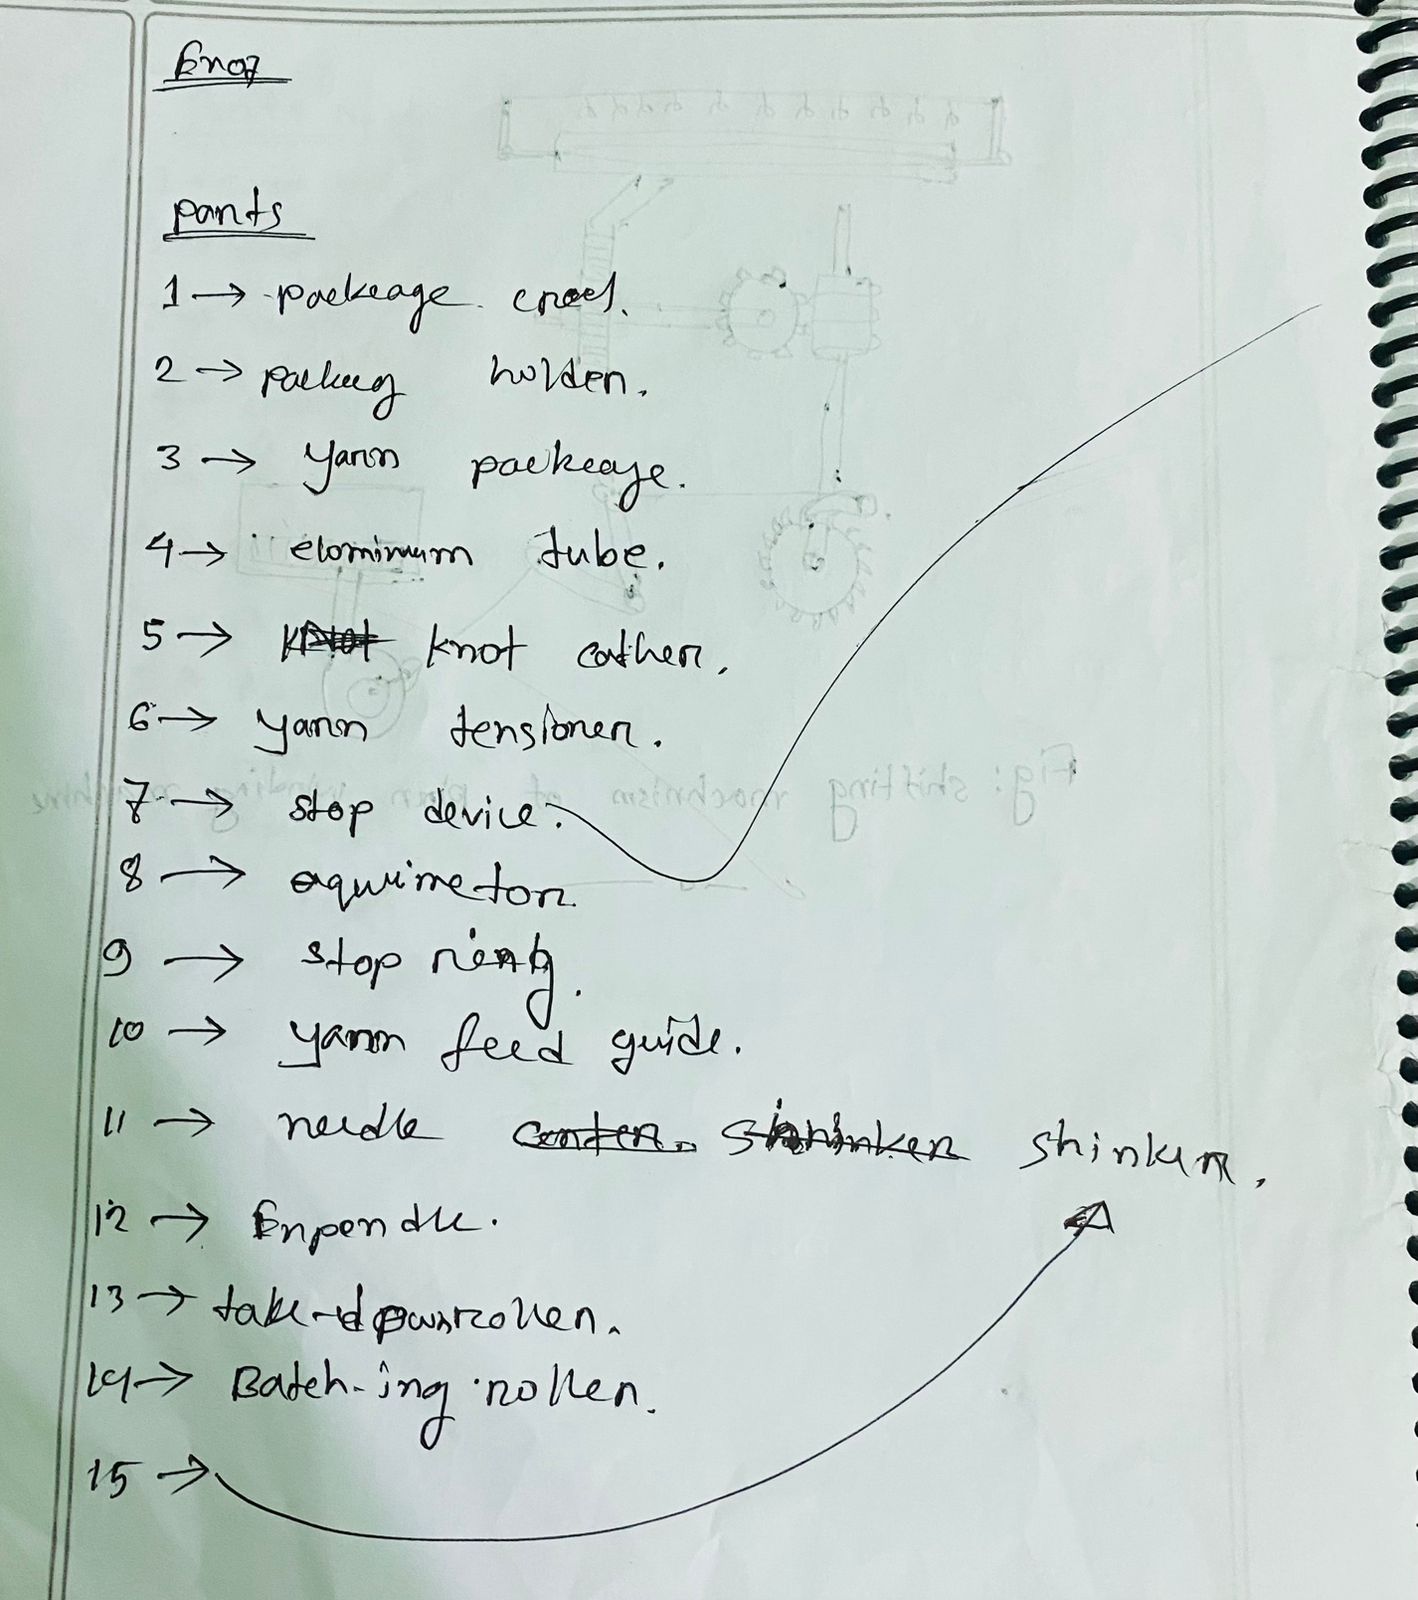 parts
1 → packeage creel.
2 → packeg holder.
3 → yarn packeage.
4 → elominum tube.
5 → knot cather.
6 → yarn tensioner.
7 → stop device.
8 → aquimetor
9 → stop
10 → yarn feed guide.
11 → needle center. shinker shinker.
12 → Enpendle.
13 → take-down roller.
14 → Batch-ing roller.
15 →
Fig: shifting mechnism of pirn winding machine